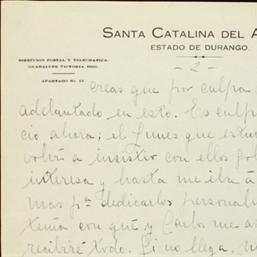 SANTA CATALINA DEL A
ESTADO DE DURANGO.
DIRECCION POSTAL Y TELEGRAFICA:
GUADALUPE VICTORIA, DGO.
APARTADO No.
- 2 -
creas que por culpa
adelantado en esto. Es culp
cio ahora; el lunes que estu
volví a insistir con ellos so
interesa y hasta me iba á
mas pª dedicarlos personal
tenía con qué y Carlos me a
recibiré todo. Si no llega,